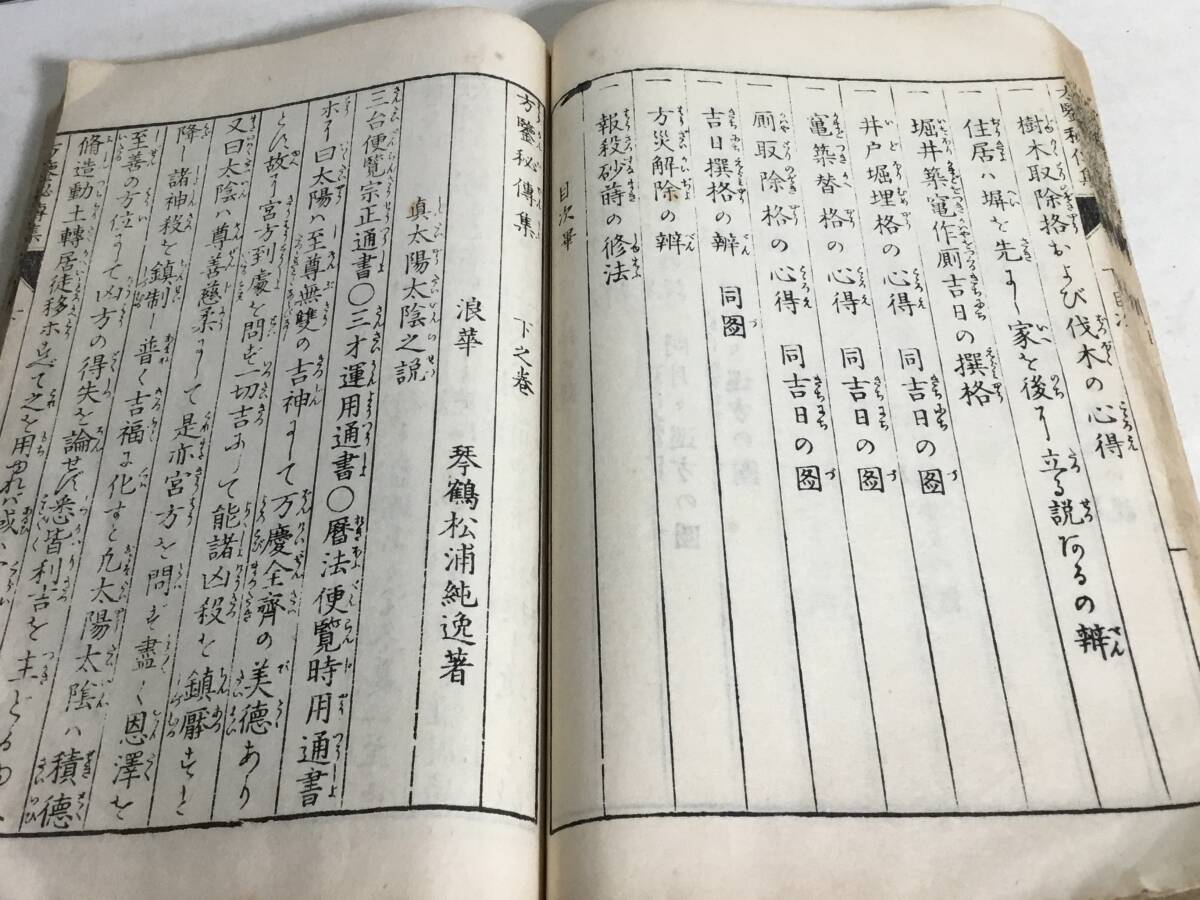 一 樹木取除格および伐木の心得
一 住居ハ塀を先にし家を後に立る説あるの辨
一 堀井築竃作厠吉日の撰格
一 井戸堀埋格の心得 同吉日の図
一 竃築替格の心得 同吉日の図
一 厠取除格の心得 同吉日の図
一 吉日撰格の辨 同図
一 方災解除の辨
一 報殺砂蒔の修法
目次畢
方鑒秘傳集 下之卷
浪華 琴鶴松浦純逸著
真太陽太陰之説
三台便覧宗正通書〇三才運用通書〇暦法便覧時用通書
ホに曰太陽ハ至尊無雙の吉神にて万慶全齊の美德あり
とす故に宮方到處を問ず一切吉にして能諸凶殺を鎮壓すと
又曰太陰ハ尊善慈柔にして是亦宮方を問ず盡く恩澤を
降し諸神殺を鎮制し普く吉福に化すと凡太陽太陰ハ積德
至善の方位にて凶方の得失を論せず悉皆利吉を主どる
脩造動土轉居徒移ホすべて之を用